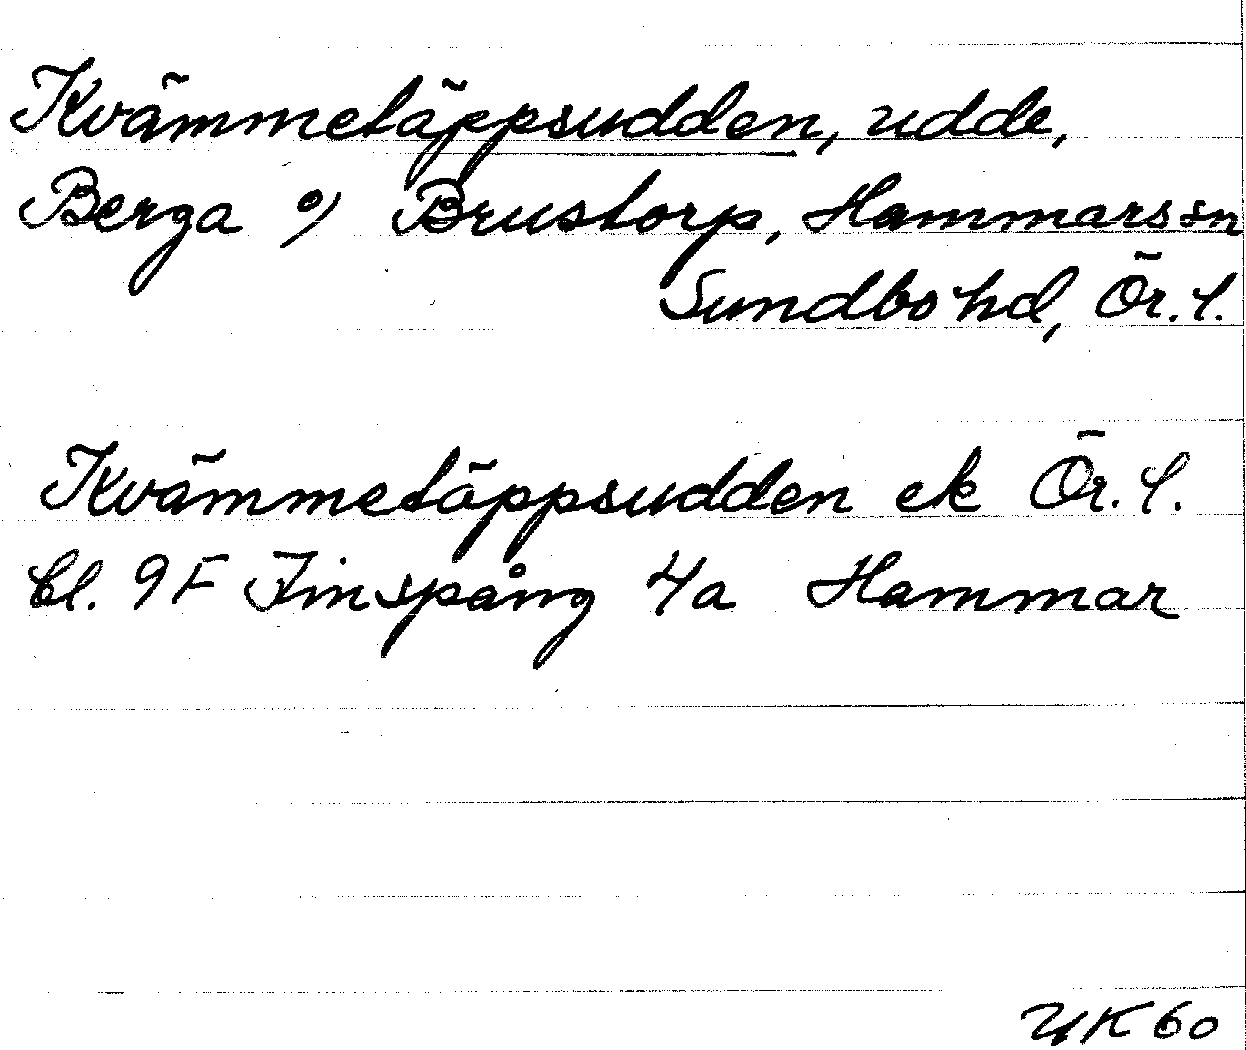 Kvämmetäppsudden, udde,
Berga o/ Brustorp, Hammars sn
Sundbo hd, Ör. l.
Kvämmetäppsudden ek Ör. l.
bl. 9F Finspång 4a Hammar
UK 60